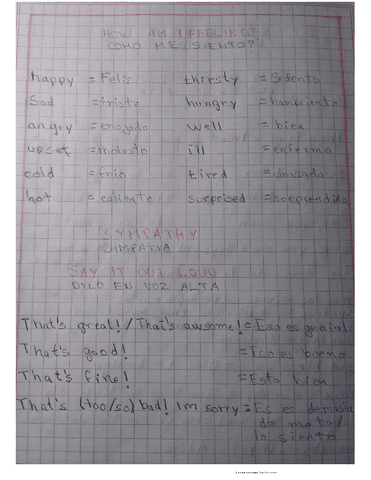 HOW AM I FEELING?
COMO ME SIENTO?
happy = Feliz thirsty = Sediento
Sad = triste hungry = hambriento
angry = enojado well = bien
upset = molesto ill = enfermo
cold = frio tired = cansado
hot = caliente surprised = sorprendido
SYMPATHY
SIMPATIA
SAY IT OUT LOUD
DYLO EN VOZ ALTA
That's great! / That's awsome! = Eso es genial
That's good! = Eso es bueno
That's fine! = Esta bien
That's (too/so) bad! Im sorry = Es es demasia
do malo/
lo siento